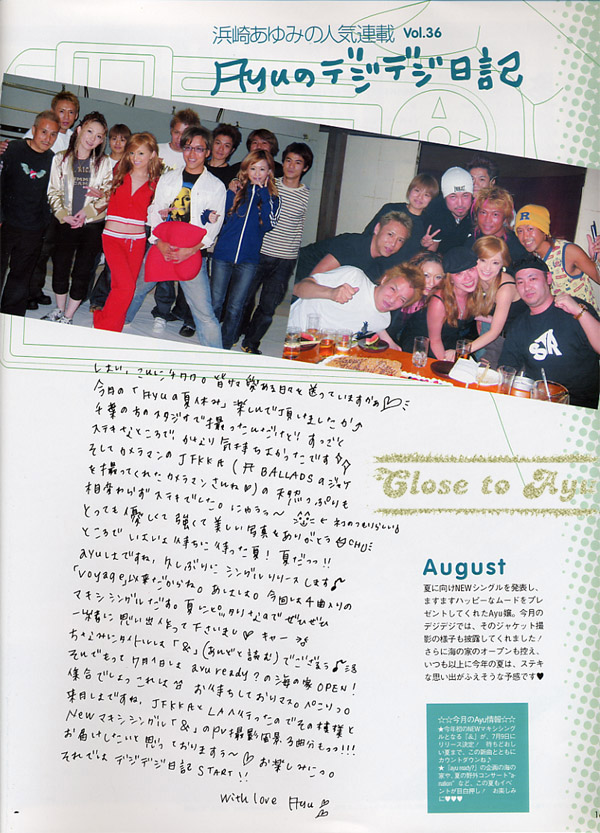 浜崎あゆみの人気連載 Vol.36
Ayuのデジデジ日記
はい、こんにチワワ。皆サマ愛ある日々を送っていますかぁ♡
今月の「Ayuの夏休み」楽しんで頂けましたか♪
千葉の方のスタジオで撮ったんだけど、すっごく
ステキなところで、かなり気持ちよかったです☆
そしてカメラマンのJFKK氏(A BALLADSのジャケ
を撮ってくれたカメラマンさんね♡)の
相かわらずステキでした。
とっても優しくて強くて美しい写真をありがとうCHU
ところで いよいよ待ちに待った夏！夏だっっ!!
ayuはですね、久しぶりにシングルリリースします♪
「Voyage」以来だからね。今回は4曲入りの
マキシシングルだす。夏にピッタリなのでぜひぜひ
一緒に思い出作って下さいまし♡ キャー
ちなみにタイトルは「&」(あんどと読む)でござそう♪
それでもって7月1日は ayu ready?の海の家OPEN!
集合でしょっ これは お待ちしておりマスo ぺこりっo
来月はですね、JFKK氏とLAへ行ったのでその模様と
Newマキシシングル「&」のPV撮影風景 3曲分もっっ!!!
お届けしたいと思っておりまする～♡ お楽しみにっo
それでは デジデジ日記 START!!
With love Ayu
Close to Ayu
August
夏に向けNEWシングルを発表し、
ますますハッピーなムードをプレ
ゼントしてくれたAyu嬢。今月の
デジデジでは、そのジャケット撮
影の様子も披露してくれました！
さらに海の家のオープンも控え、
いつも以上に今年の夏は、ステキ
な思い出がふえそうな予感です♥
☆☆今月のAyu情報☆☆
★今年初のNEWマキシシング
ルとなる『&』が、7月9日に
リリース決定！ 待ちどおし
い夏まで、この新曲とともに
カウントダウンね♪
★『ayu ready?』の企画の海の
家や、夏の野外コンサート“a-
nation”など、この夏もイベ
ントが目白押し！ お楽しみ
に♥♥♥